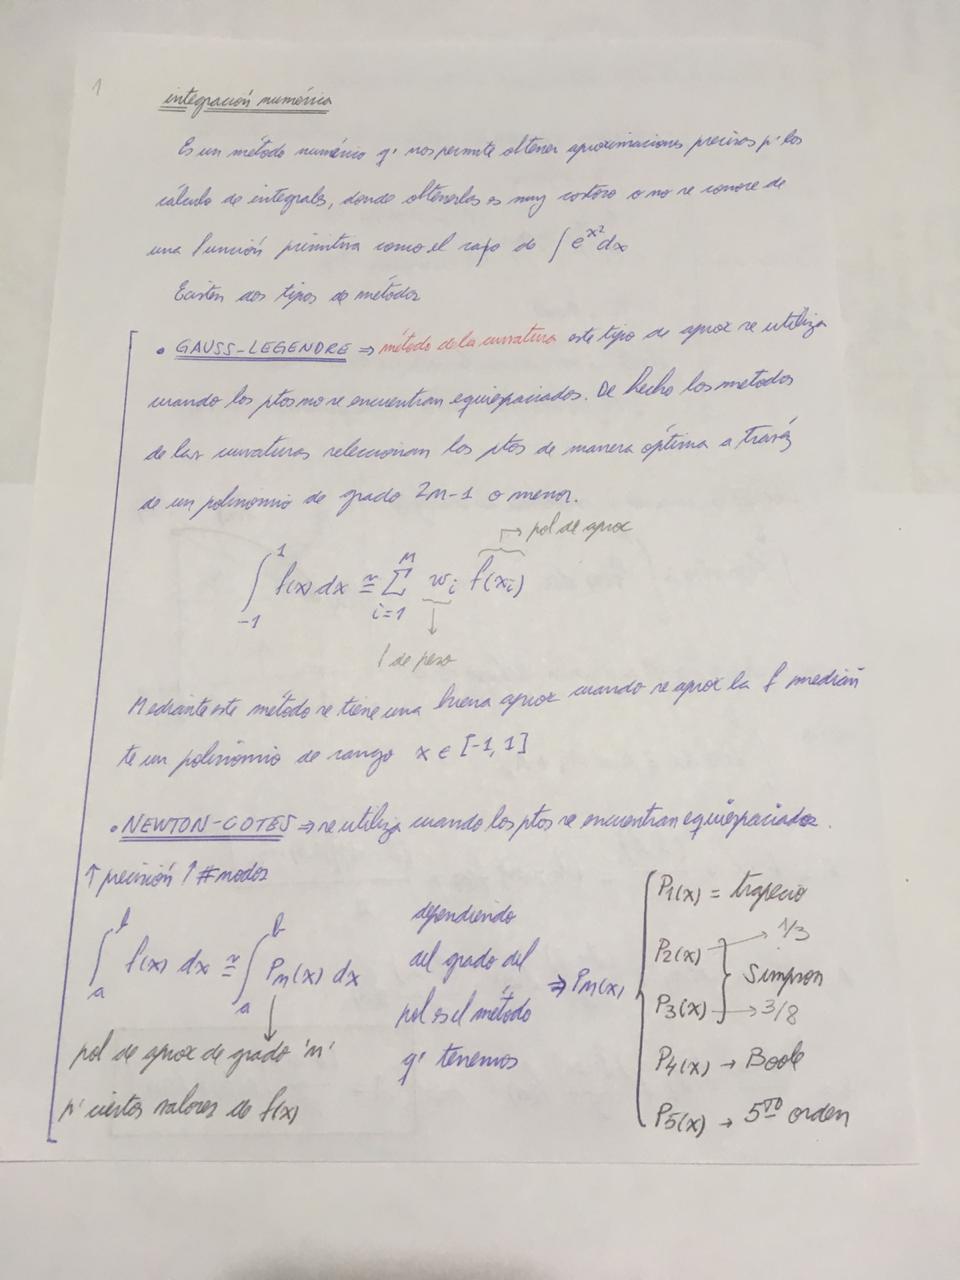 1
integración numérica
Es un método numérico q' nos permite obtener aproximaciones precisas p' los
cálculo de integrales, donde obtenerlas es muy costoso o no se conoce de
una función primitiva como el caso de ∫ e^{x²} dx
Existen dos tipos de métodos
• GAUSS-LEGENDRE ⇒ método de la curvatura este tipo de aprox se utiliza
cuando los ptos no se encuentran equiespaciados. De hecho los métodos
de las curvaturas seleccionan los ptos de manera óptima a través
de un polinomio de grado 2n-1 o menor.
↦ pol de aprox
∫_{-1}^{1} f(x) dx ≅ Σ_{i=1}^{n} w_i f(x_i)
f de peso
Mediante este método se tiene una buena aprox cuando se aprox la f median
te un polinomio de rango x ∈ [-1, 1]
• NEWTON-COTES ⇒ se utiliza cuando los ptos se encuentran equiespaciados.
↑ precisión ↑ # nodos
∫_a^b f(x) dx ≅ ∫_a^b P_n(x) dx
pol de aprox de grado 'n'
p' ciertos valores de f(x)
dependiendo
del grado del
pol es el método
q' tenemos
⇒ P_n(x)
P_1(x) = trapecio
P_2(x) → 1/3
Simpson
P_3(x) → 3/8
P_4(x) → Boole
P_5(x) → 5to orden